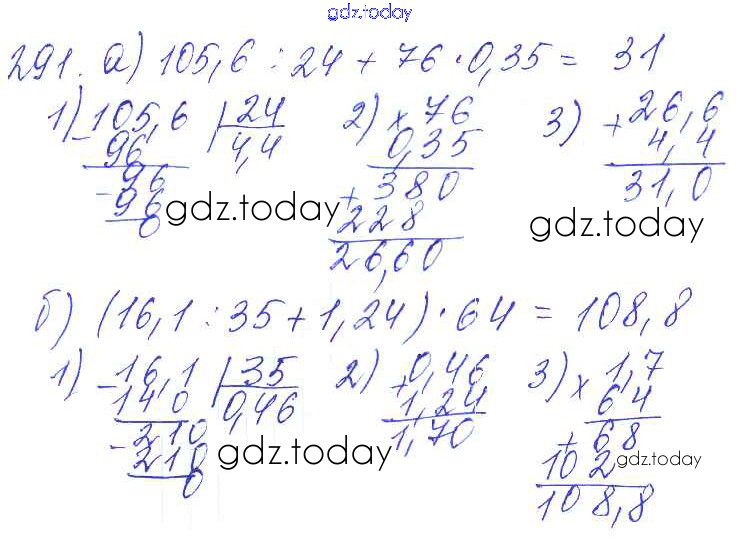 gdz.today
291. а) 105,6 : 24 + 76 · 0,35 = 31
1) 105,6 | 24 2) × 76 3) + 26,6
- 96 4,4 0,35 4,4
- 96 + 380 31,0
96 228
0 26,60
gdz.today gdz.today
б) (16,1 : 35 + 1,24) · 64 = 108,8
1) - 16,1 | 35 2) + 0,46 3) × 1,7
140 0,46 1,24 64
- 210 1,70 + 68
210 102
0 108,8
gdz.today gdz.today